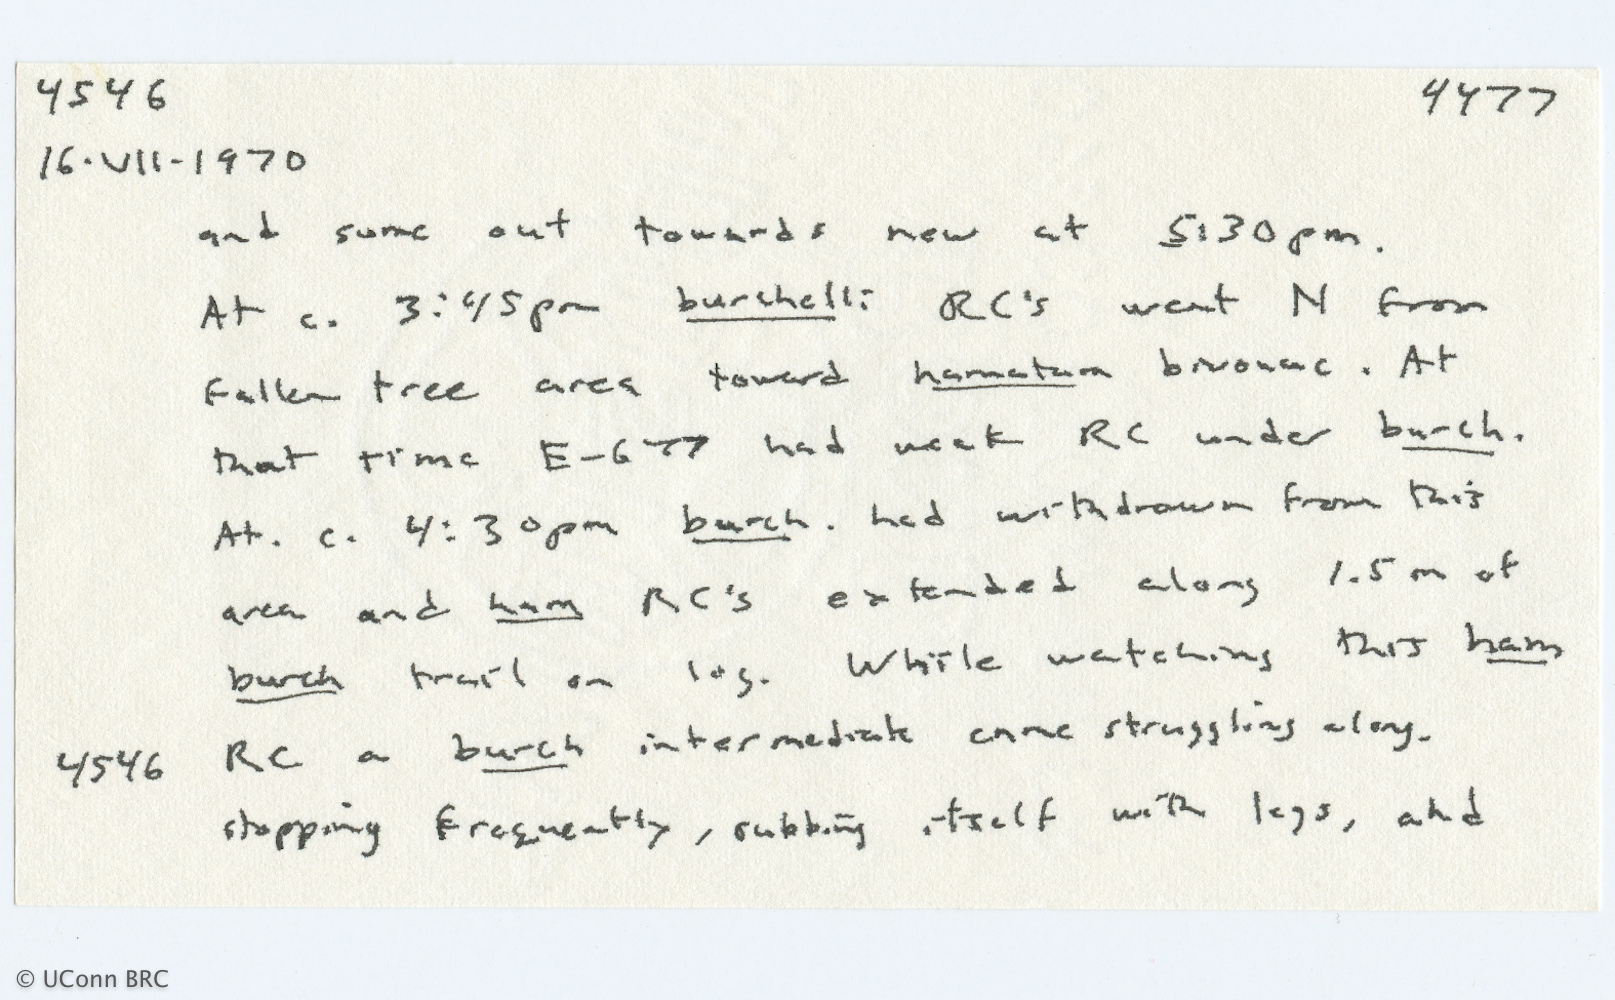 4546 4477
16-VII-1970
and some out towards new at 5:30pm.
At c. 3:45pm burchelli RC's went N from
fallen tree area toward hamatum bivouac. At
that time E-677 had weak RC under burch.
At. c. 4:30pm burch. had withdrawn from this
area and ham RC's extended along 1.5 m of
burch trail on log. While watching this ham
4546 RC a burch intermediate came struggling along.
stopping frequently, rubbing itself with legs, and
© UConn BRC